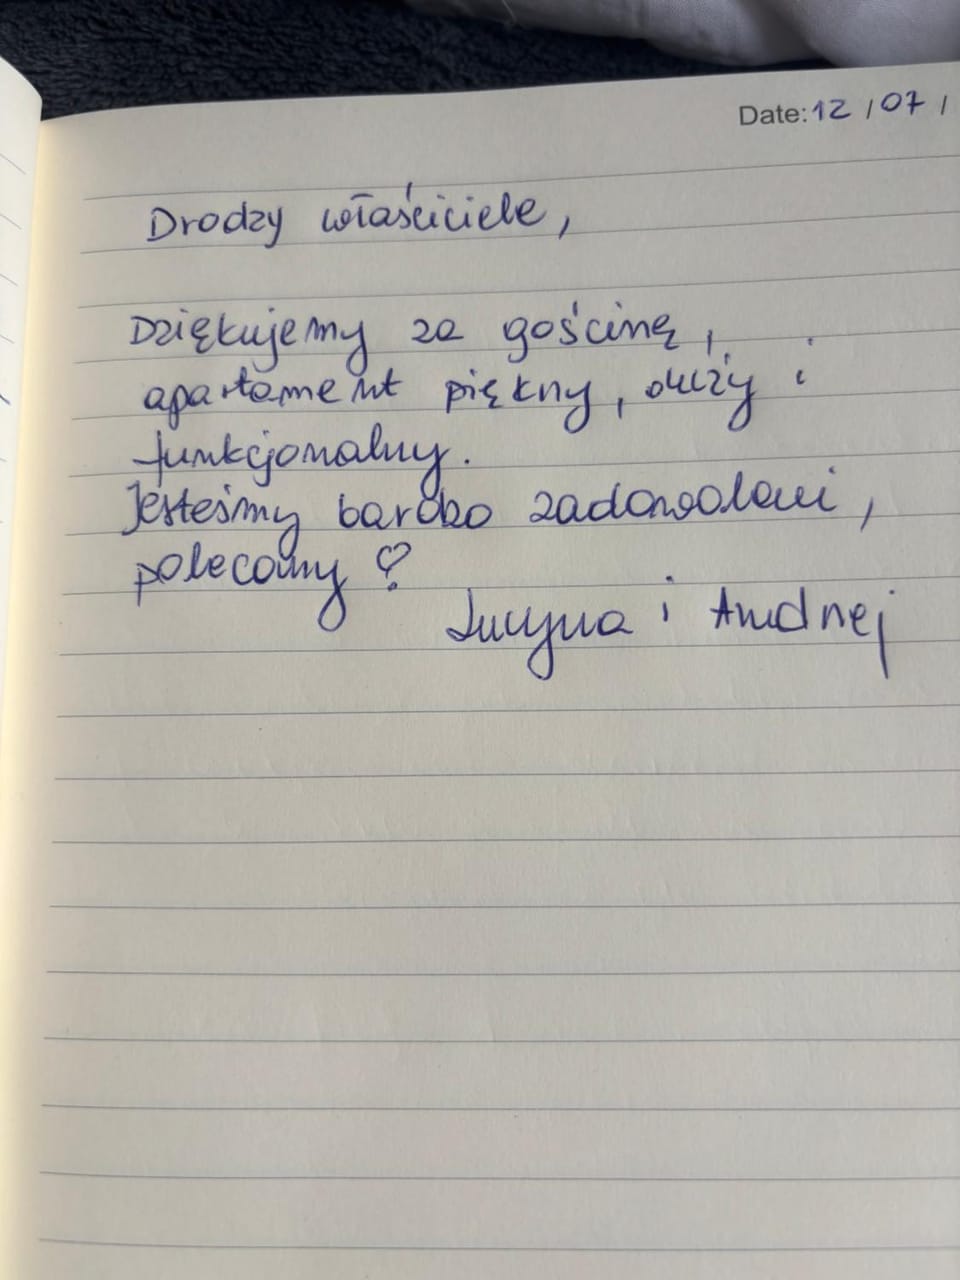 Date: 12 / 07 /
Drodzy właściciele,
Dziękujemy za gościnę,
apartament piękny, duży i
funkcjonalny.
Jesteśmy bardzo zadowoleni,
polecamy
Lucyna i Andrzej